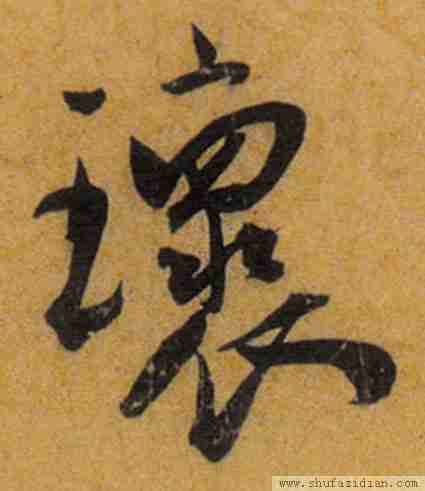 瓌
www.shufazidian.com